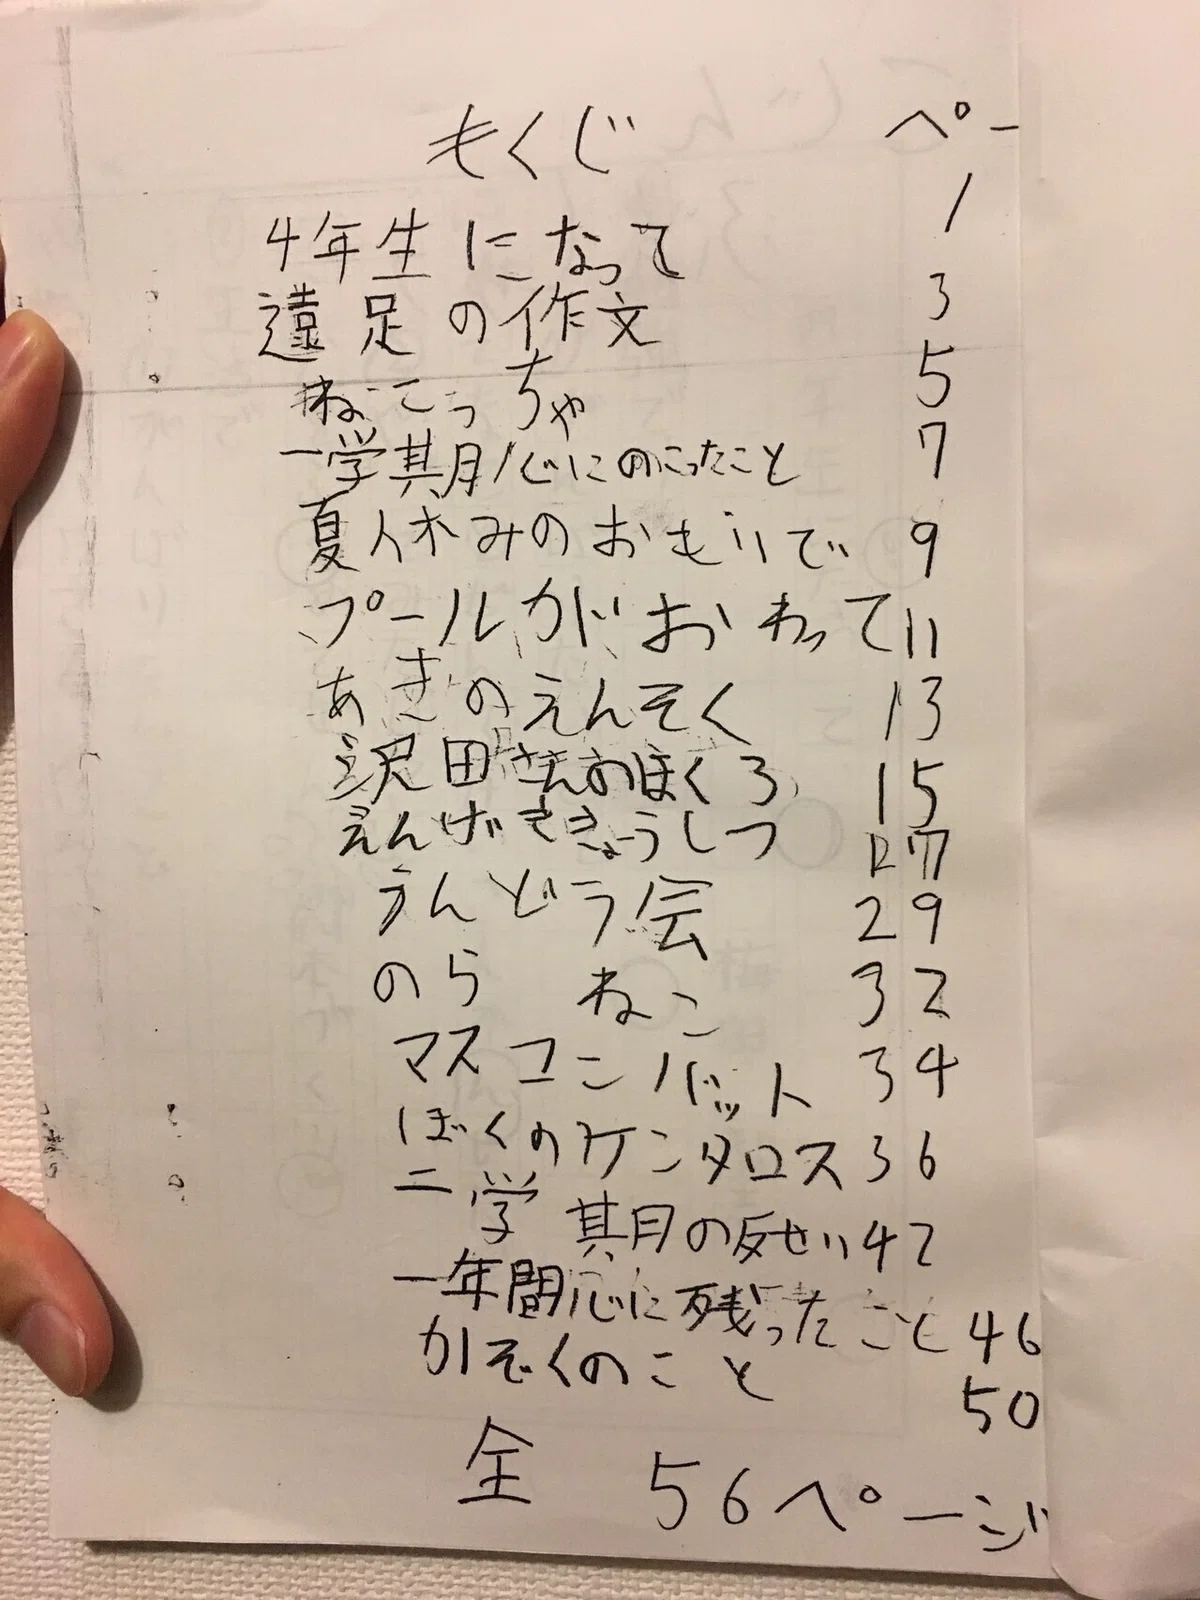 もくじ ペー
4年生になって 1
遠足の作文 3
ねこっちゃ 5
一学期心にのこったこと 7
夏休みのおもいで 9
プールがおわって 11
あきのえんそく 13
沢田さんおほくろ 15
えんげききょうしつ 17
うんどう会 29
のらねこ 32
マスコンバット 34
ぼくのケンタロス 36
二学期の反せい 42
一年間心に残ったこと 46
かぞくのこと 50
全 56ページ